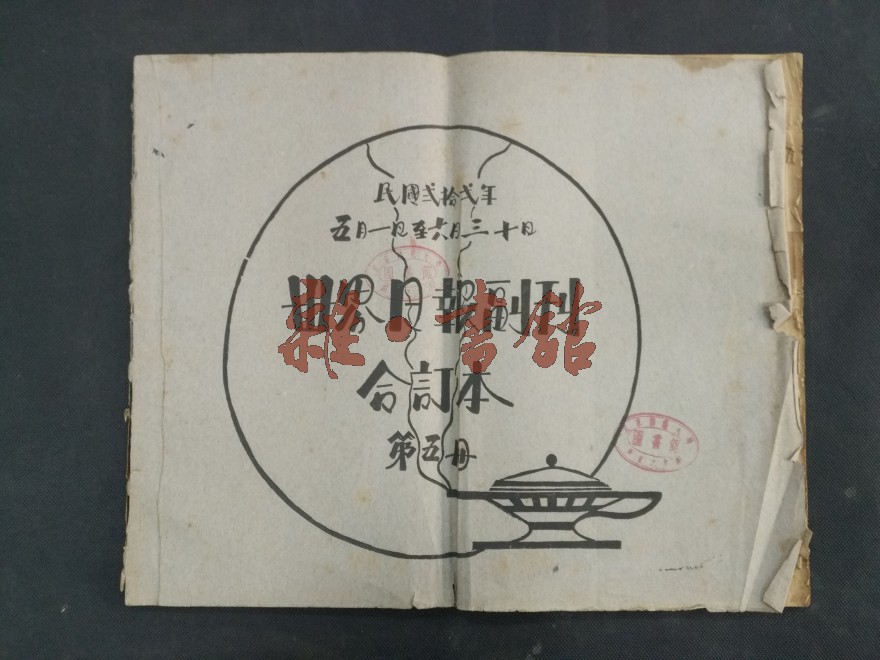 民國弍拾弍年
五月一日至六月三十日
世界日報副刊
合訂本
第五冊
雜·書館
圖書館